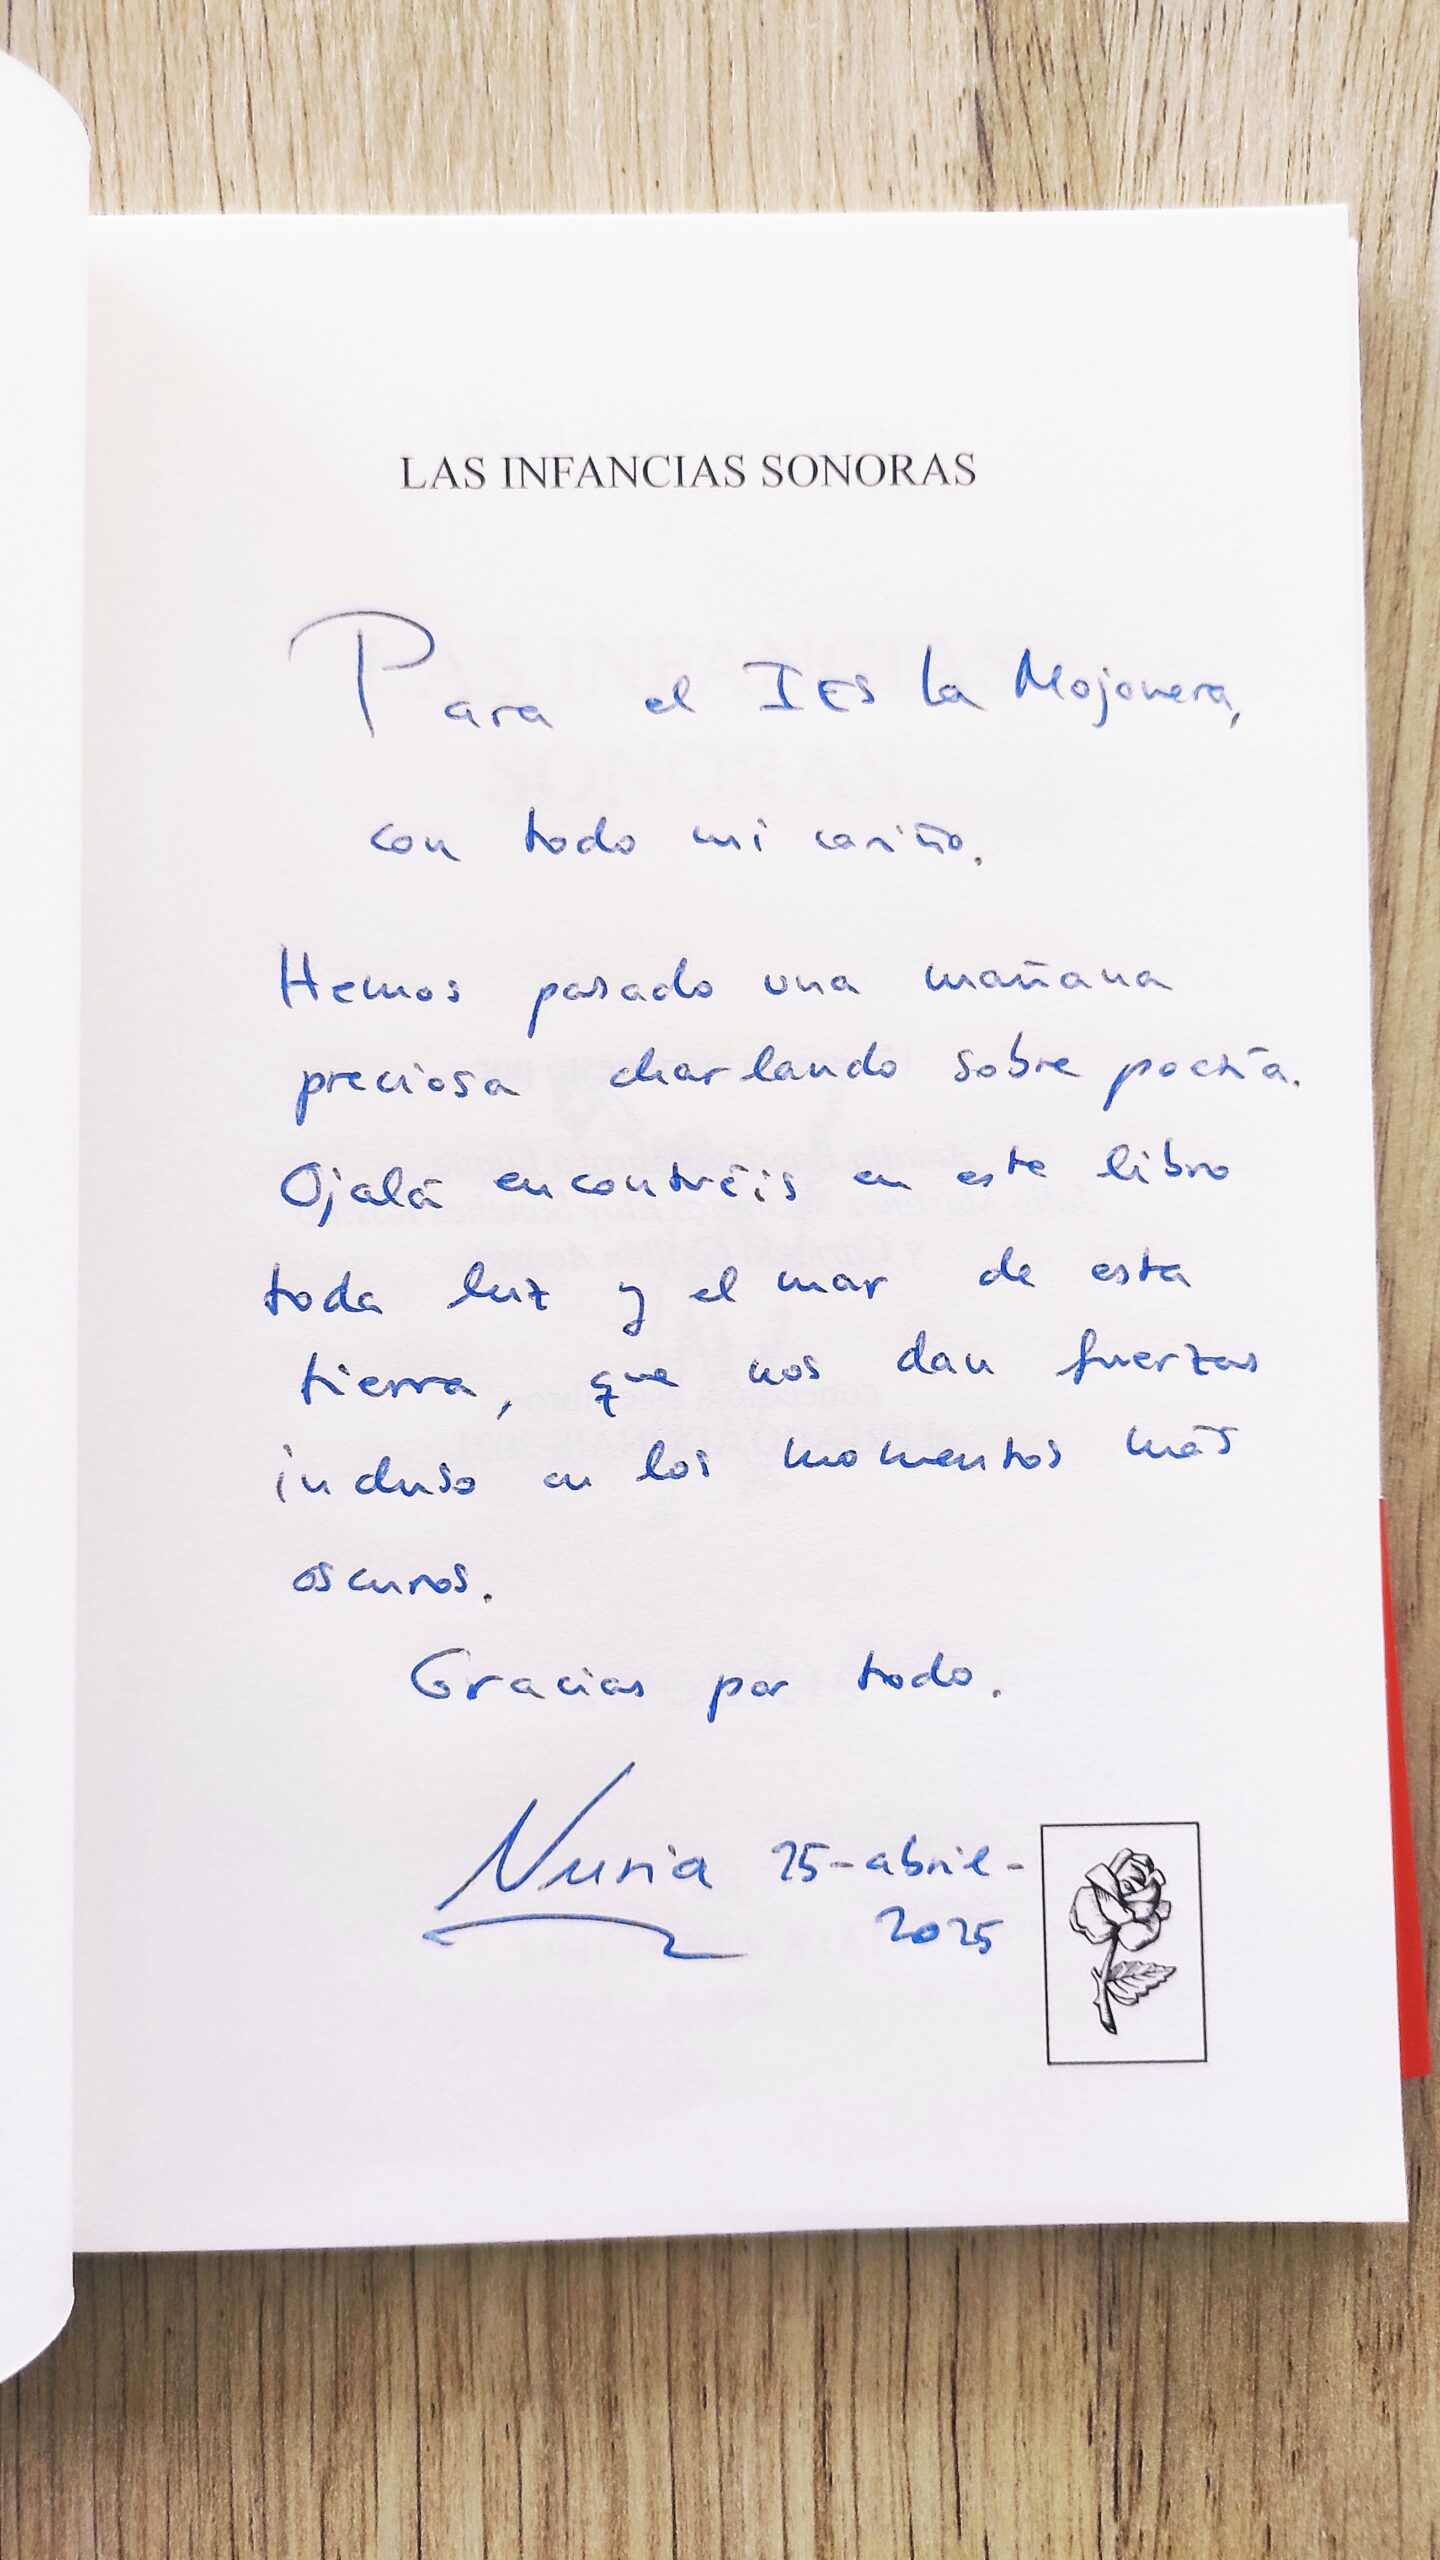 LAS INFANCIAS SONORAS
Para el IES La Mojonera,
con todo mi cariño.
Hemos pasado una mañana
preciosa charlando sobre poesía.
Ojalá encontréis en este libro
toda luz y el mar de esta
tierra, que nos dan fuerzas
incluso en los momentos más
oscuros.
Gracias por todo.
Nuria 25-abril-
2025